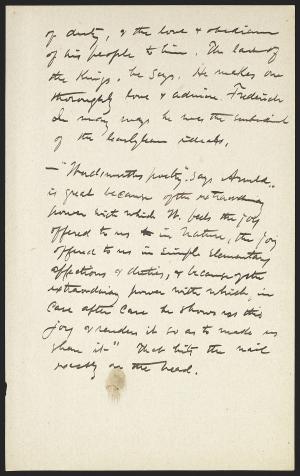 of duty, & the love & obedience
of his people to him. The last of
the Kings, he says. He makes one
thoroughly love & admire Frederick
In many ways he was the embodiment
of the Carlylean ideals.
— "Wordsworth's poetry", says Arnold, "
is great because of the extraordinary
power with which W. feels the joy
offered to us in Nature, the joy
offered to us in simple elementary
affections & duties, & because of the
extraordinary power with which, in
case after case he shows us this
joy & renders it so as to make us
share it—" That hits the nail
exactly on the head.